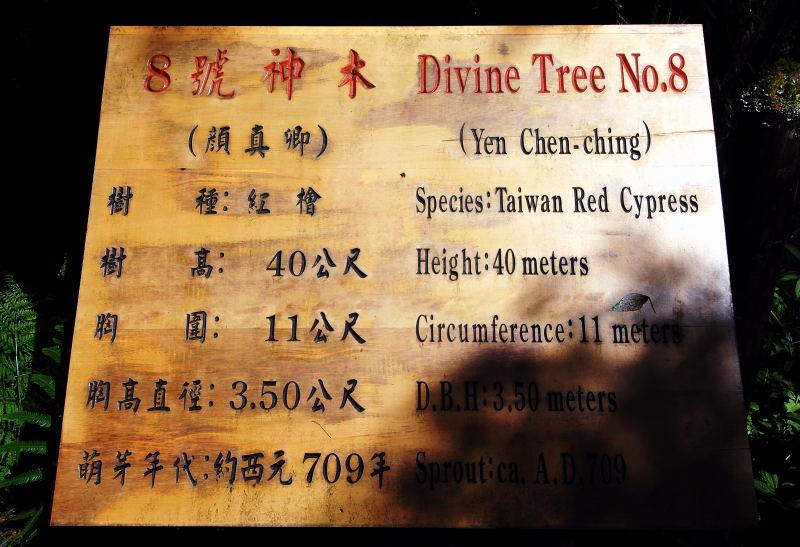 8號神木 Divine Tree No.8
(顏真卿) (Yen Chen-ching)
樹 種:紅 檜 Species:Taiwan Red Cypress
樹 高: 40公尺 Height:40 meters
胸 圍: 11公尺 Circumference:11 meters
胸高直徑:3.50公尺 D.B.H:3.50 meters
萌芽年代:約西元709年 Sprout:ca. A.D.709